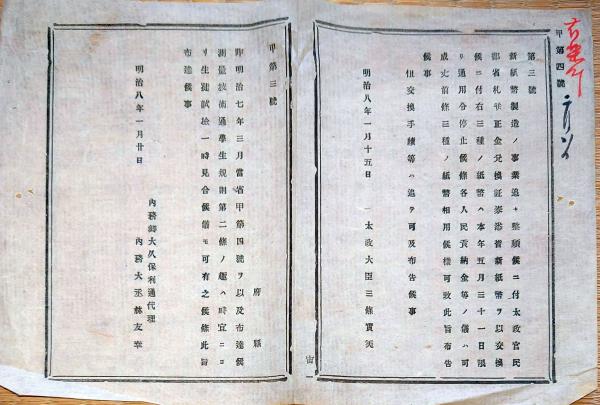 甲第四號
第三號
新紙幣製造ノ事業追々整頓候ニ付太政官民
部省札幷正金兌換証券洛皆新紙幣ヲ以交換
候ニ付右三種ノ紙幣ハ本年五月三十一日限
リ通用令停止候條各人民貢納金等ノ儀ハ可
成丈前條三種ノ紙幣相用候樣可致此旨布告
候事
但交換手續等ハ追テ可及布告候事
明治八年一月十五日
太政大臣三條實美
甲第三號
府縣
昨明治七年三月當省甲第四號ヲ以及布達候
測量技術通學生規則第二條ノ趣ハ時宜ニヨ
リ生徒試檢一時見合候儀モ可有之候條此旨
布達候事
明治八年一月廿日
內務卿大久保利通代理
內務大丞林友幸